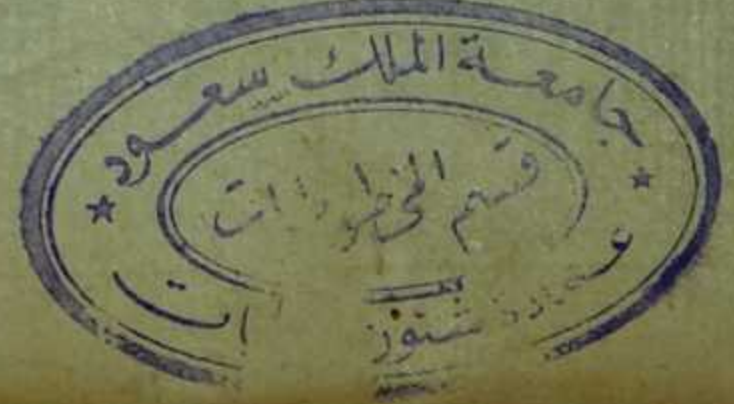 جامعة الملك سعود
قسم المخطوطات
شئون